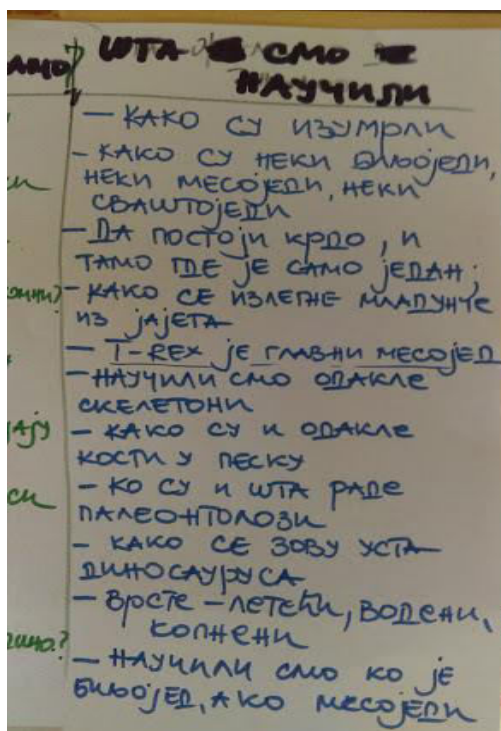 ШТА СМО
НАУЧИЛИ
- КАКО СУ ИЗУМРЛИ
- КАКО СУ НЕКИ БИЉОЈЕДИ,
НЕКИ МЕСОЈЕДИ, НЕКИ
СВАШТОЈЕДИ
- ДА ПОСТОЈИ КРДО, И
ТАМО ГДЕ ЈЕ САМО ЈЕДАН;
- КАКО СЕ ИЗЛЕГНЕ МЛАДУНЧЕ
ИЗ ЈАЈЕТА
- T-REX ЈЕ ГЛАВНИ МЕСОЈЕД
- НАУЧИЛИ СМО ОДАКЛЕ
СКЕЛЕТОНИ
- КАКО СУ И ОДАКЛЕ
КОСТИ У ПЕСКУ
- КО СУ И ШТА РАДЕ
ПАЛЕОНТОЛОЗИ
- КАКО СЕ ЗОВУ УСТА
ДИНОСАУРУСА
- ВРСТЕ - ЛЕТЕЋИ, ВОДЕНИ,
КОПНЕНИ
- НАУЧИЛИ СМО КО ЈЕ
БИЉОЈЕД, А КО МЕСОЈЕДИ